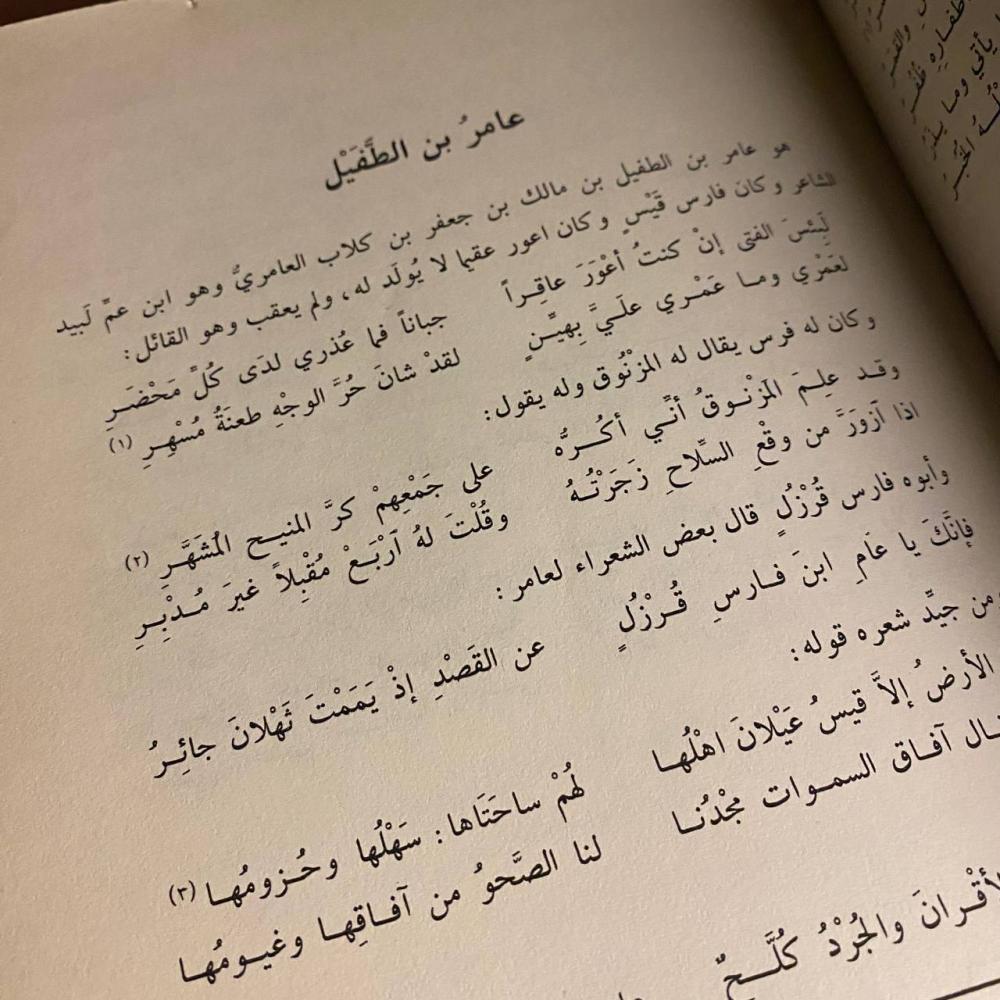 عامرُ بن الطُّفَيْل
هو عامر بن الطفيل بن مالك بن جعفر بن كلاب العامريُّ وهو ابن عمِّ لَبيد
الشاعر وكان فارس قَيْسٍ وكان اعور عقيما لا يُولَد له، ولم يعقب وهو القائل:
لَبِئسَ الفتى إنْ كنتُ أعْوَرَ عاقِراً جباناً فما عُذري لدَى كُلِّ مَحْضَرِ
لعَمْري وما عَمْري علَيَّ بِهيِّنٍ لقدْ شانَ حُرَّ الوجْهِ طعنَةُ مُسْهِرِ (١)
وكان له فرس يقال له المزْنُوق وله يقول:
وقد علِمَ المَزْنوقُ أنِّي أكُرُّه على جَمْعِهِمْ كرَّ المنيح المُشَهَّرِ (٢)
اذا آزوَرَّ من وقْعِ السِّلاحِ زَجَرْتُهُ وقُلْتَ لهُ آرْبَعْ مُقْبِلاً غيرَ مُدْبِرِ
وأبوه فارس قُرْزُلٍ قال بعض الشعراء لعامر:
فإنَّكَ يا عَامِ ابنَ فارسِ قُرْزُلٍ عن القَصْدِ إذْ يَمَمْتَ ثَهْلانَ جائِرُ
من جيِّد شعره قوله:
الأرضُ إلاَّ قيسُ عَيْلانَ اهْلُها لهُمْ ساحَتَاها: سَهْلُها وحُزومُها (٣)
آفاق السموات مجْدُنا لنا الصَّحوُ من آفاقِها وغيومُها
والجُرْدُ كُلَّحٌ